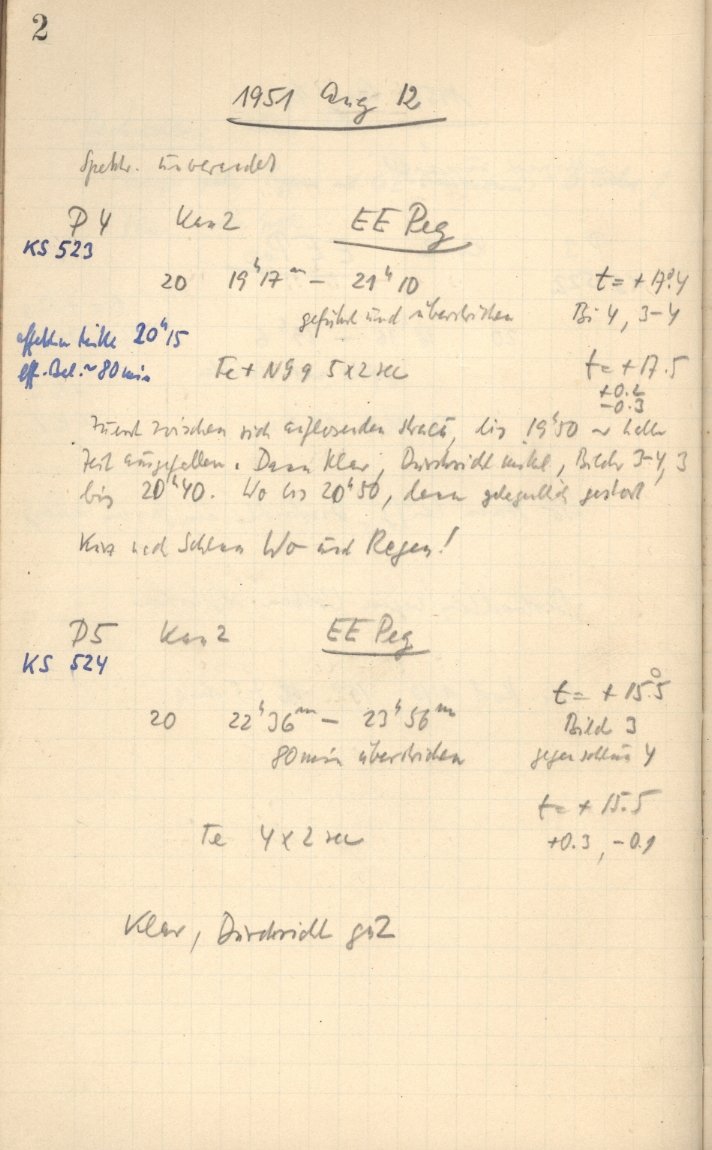 2
1951 Aug 12
Spektr. unverändert
P4 Kam 2 EE Peg
KS 523
20 19h17m – 21h10 t = +17°.4
geführt und überstrichen Bi 4, 3-4
effektive Mitte 20h15
eff. Bel. ~ 80 min Fe + NG9 5x2 sec t = +17.5
+0.2
-0.3
Zuerst zwischen sich auflösenden Stracu, bis 19h50 ~ halbe
Zeit ausgefallen. Dann klar, Durchsicht mittel, Bilder 3-4, 3
bis 20h40. Wo bis 20h50, dann gelegentlich gestört
Kurz nach Schluss Wo und Regen!
P5 Kam 2 EE Peg
KS 524
t = +15°.5
20 22h36m – 23h56m Bild 3
80 min überstrichen gegen schluss 4
t = +15.5
Fe 4x2 sec +0.3, -0.1
Klar, Durchsicht gut